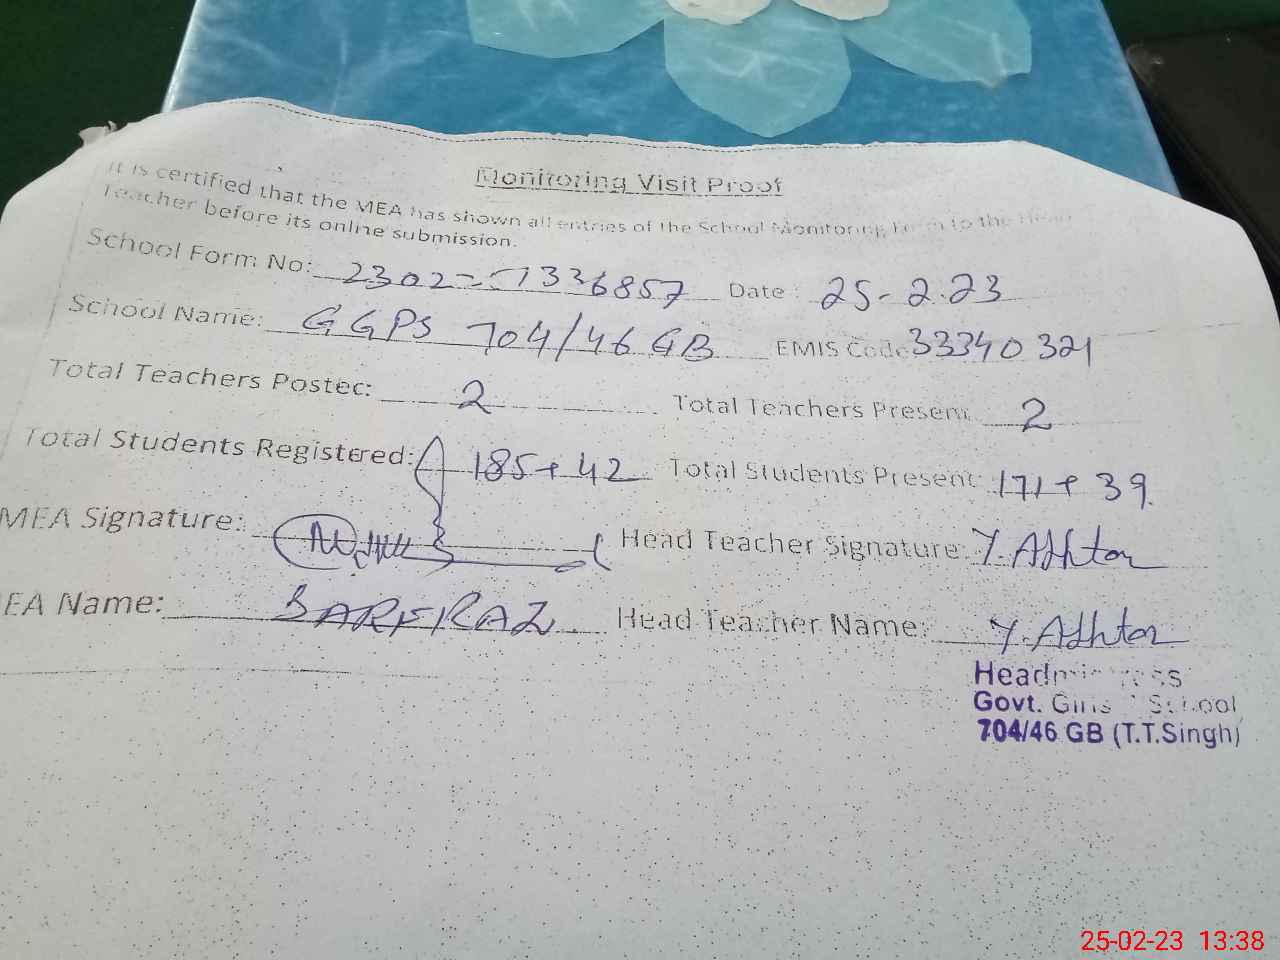 Monitoring Visit Proof
It is certified that the MEA has shown all entries of the School Monitoring Form to the Head
Teacher before its online submission.
School Form No: 2302-1336857 Date: 25-2.23
School Name: GGPS 704/46 GB EMIS Code 33340321
Total Teachers Posted: 2 Total Teachers Present 2
Total Students Registered: 185+42 Total Students Present: 171+39.
MEA Signature: Head Teacher Signature: Y. Akhtar
EA Name: SARFRAZ Head Teacher Name: Y. Akhtar
Headmistress
Govt. Girls School
704/46 GB (T.T.Singh)
25-02-23 13:38